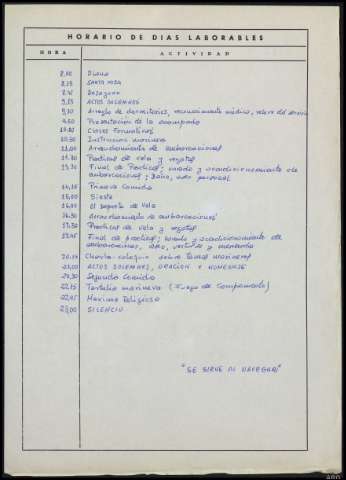 HORARIO DE DIAS LABORABLES
HORA ACTIVIDAD
8,00 Diana
8,15 SANTA MISA
8,45 Desayuno
9,15 ACTOS SOLEMNES
9,30 Arreglo de dormitorios, reconocimiento médico, relevo del servicio
Presentación de la acampada
10,00 Clases Formativas
10,30 Instrucción marinera
11,00 Arranchamiento de embarcaciones
11,30 Practicas de vela y regatas
13,30 Final de Practicas; varado y acondicionamiento de
embarcaciones; Baño, aseo personal
14,15 Primera Comida
15,00 Siesta
16,00 El deporte de Vela
16,30 Arranchamiento de embarcaciones
17,30 Practicas de vela y regatas
Final de practicas; varado y acondicionamiento de
embarcaciones, aseo, y merienda
Charla-coloquio sobre temas marineros
21,00 ACTOS SOLEMNES, ORACION Y HOMENAJE
21,30 Segunda Comida
22,15 Tertulia marinera (Fuego de Campamento)
22,45 Maxima Religiosa
23,00 SILENCIO
"SE SIRVE AL NAVEGAR"